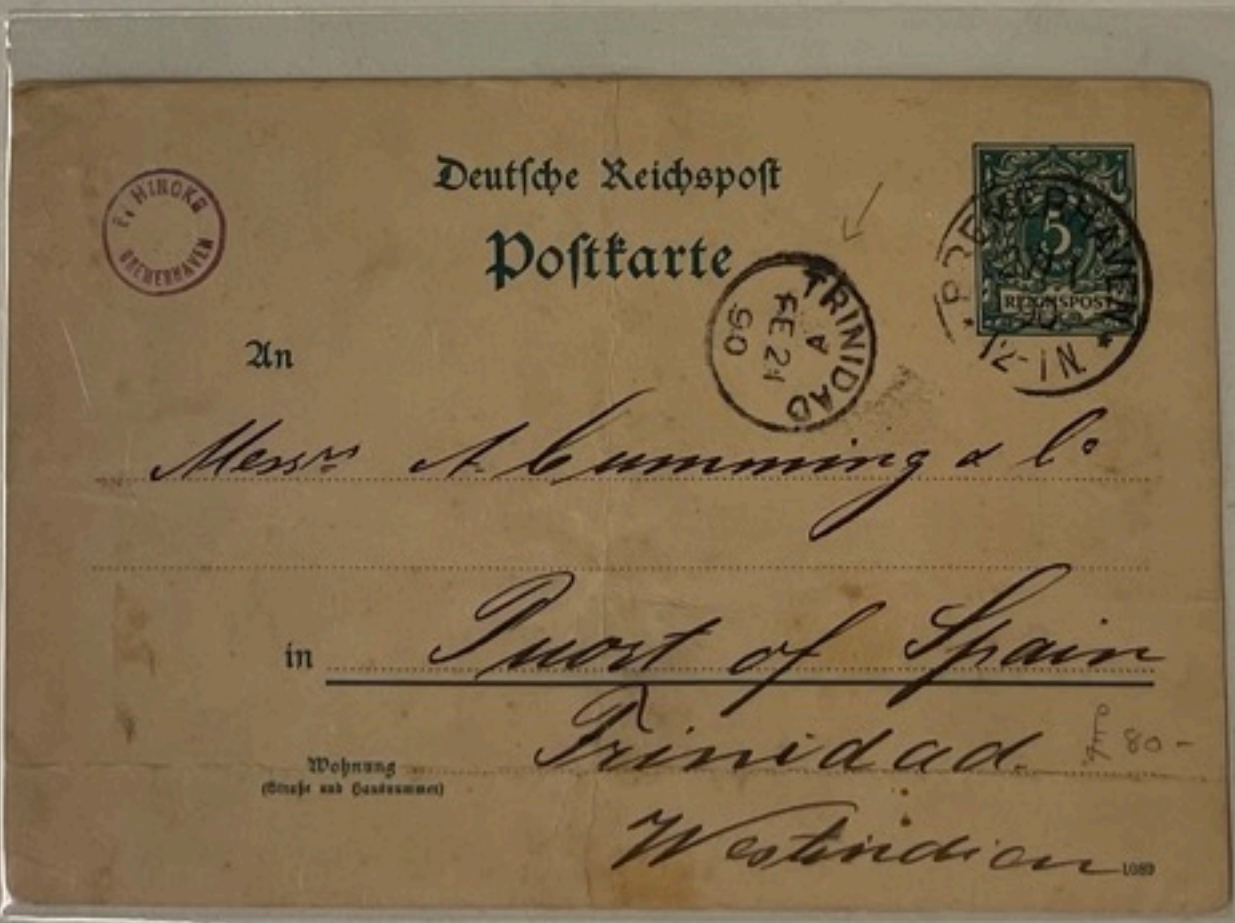 Deutsche Reichspost
Postkarte
HINCKE
BREMERHAVEN
5
REICHSPOST
BREMERHAVEN
90
* 12-1N. *
TRINIDAD
A
FE 21
90
An
Messrs A. Cumming & Co
in Puort of Spain
Trinidad.
80-
Wohnung
(Straße und Hausnummer)
Westindien
1089